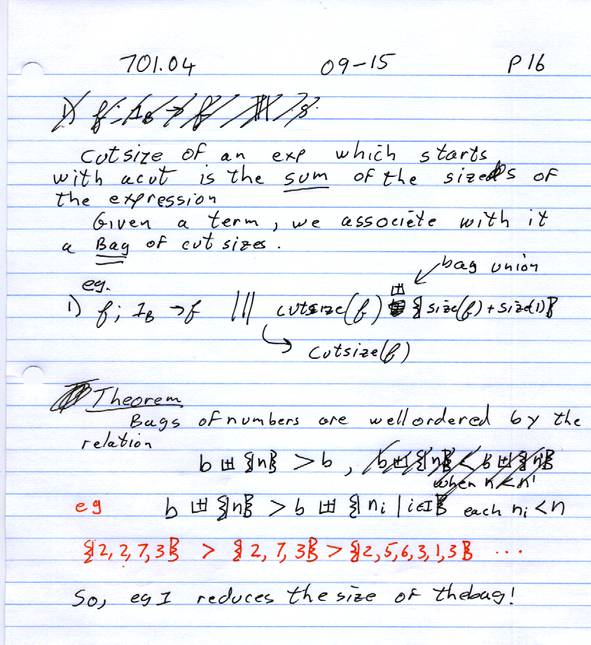 701.04 09-15 P16
1) f; 1_B → f
cutsize of an exp which starts
with a cut is the sum of the sizes of
the expression
Given a term, we associete with it
a Bag of cut sizes.
bag union
eg.
1) f; 1_B → f ||| cutsize(f) ⊎ {size(f) + size(1)}
cutsize(f)
Theorem
Bags of numbers are well ordered by the
relation
b ⊎ {n} > b, b ⊎ {n} < b ⊎ {n'}
when n < n'
eg b ⊎ {n} > b ⊎ {n_i | i∈I} each n_i < n
{2,2,7,3} > {2,7,3} > {2,5,6,3,1,3} ...
So, eg 1 reduces the size of the bag!